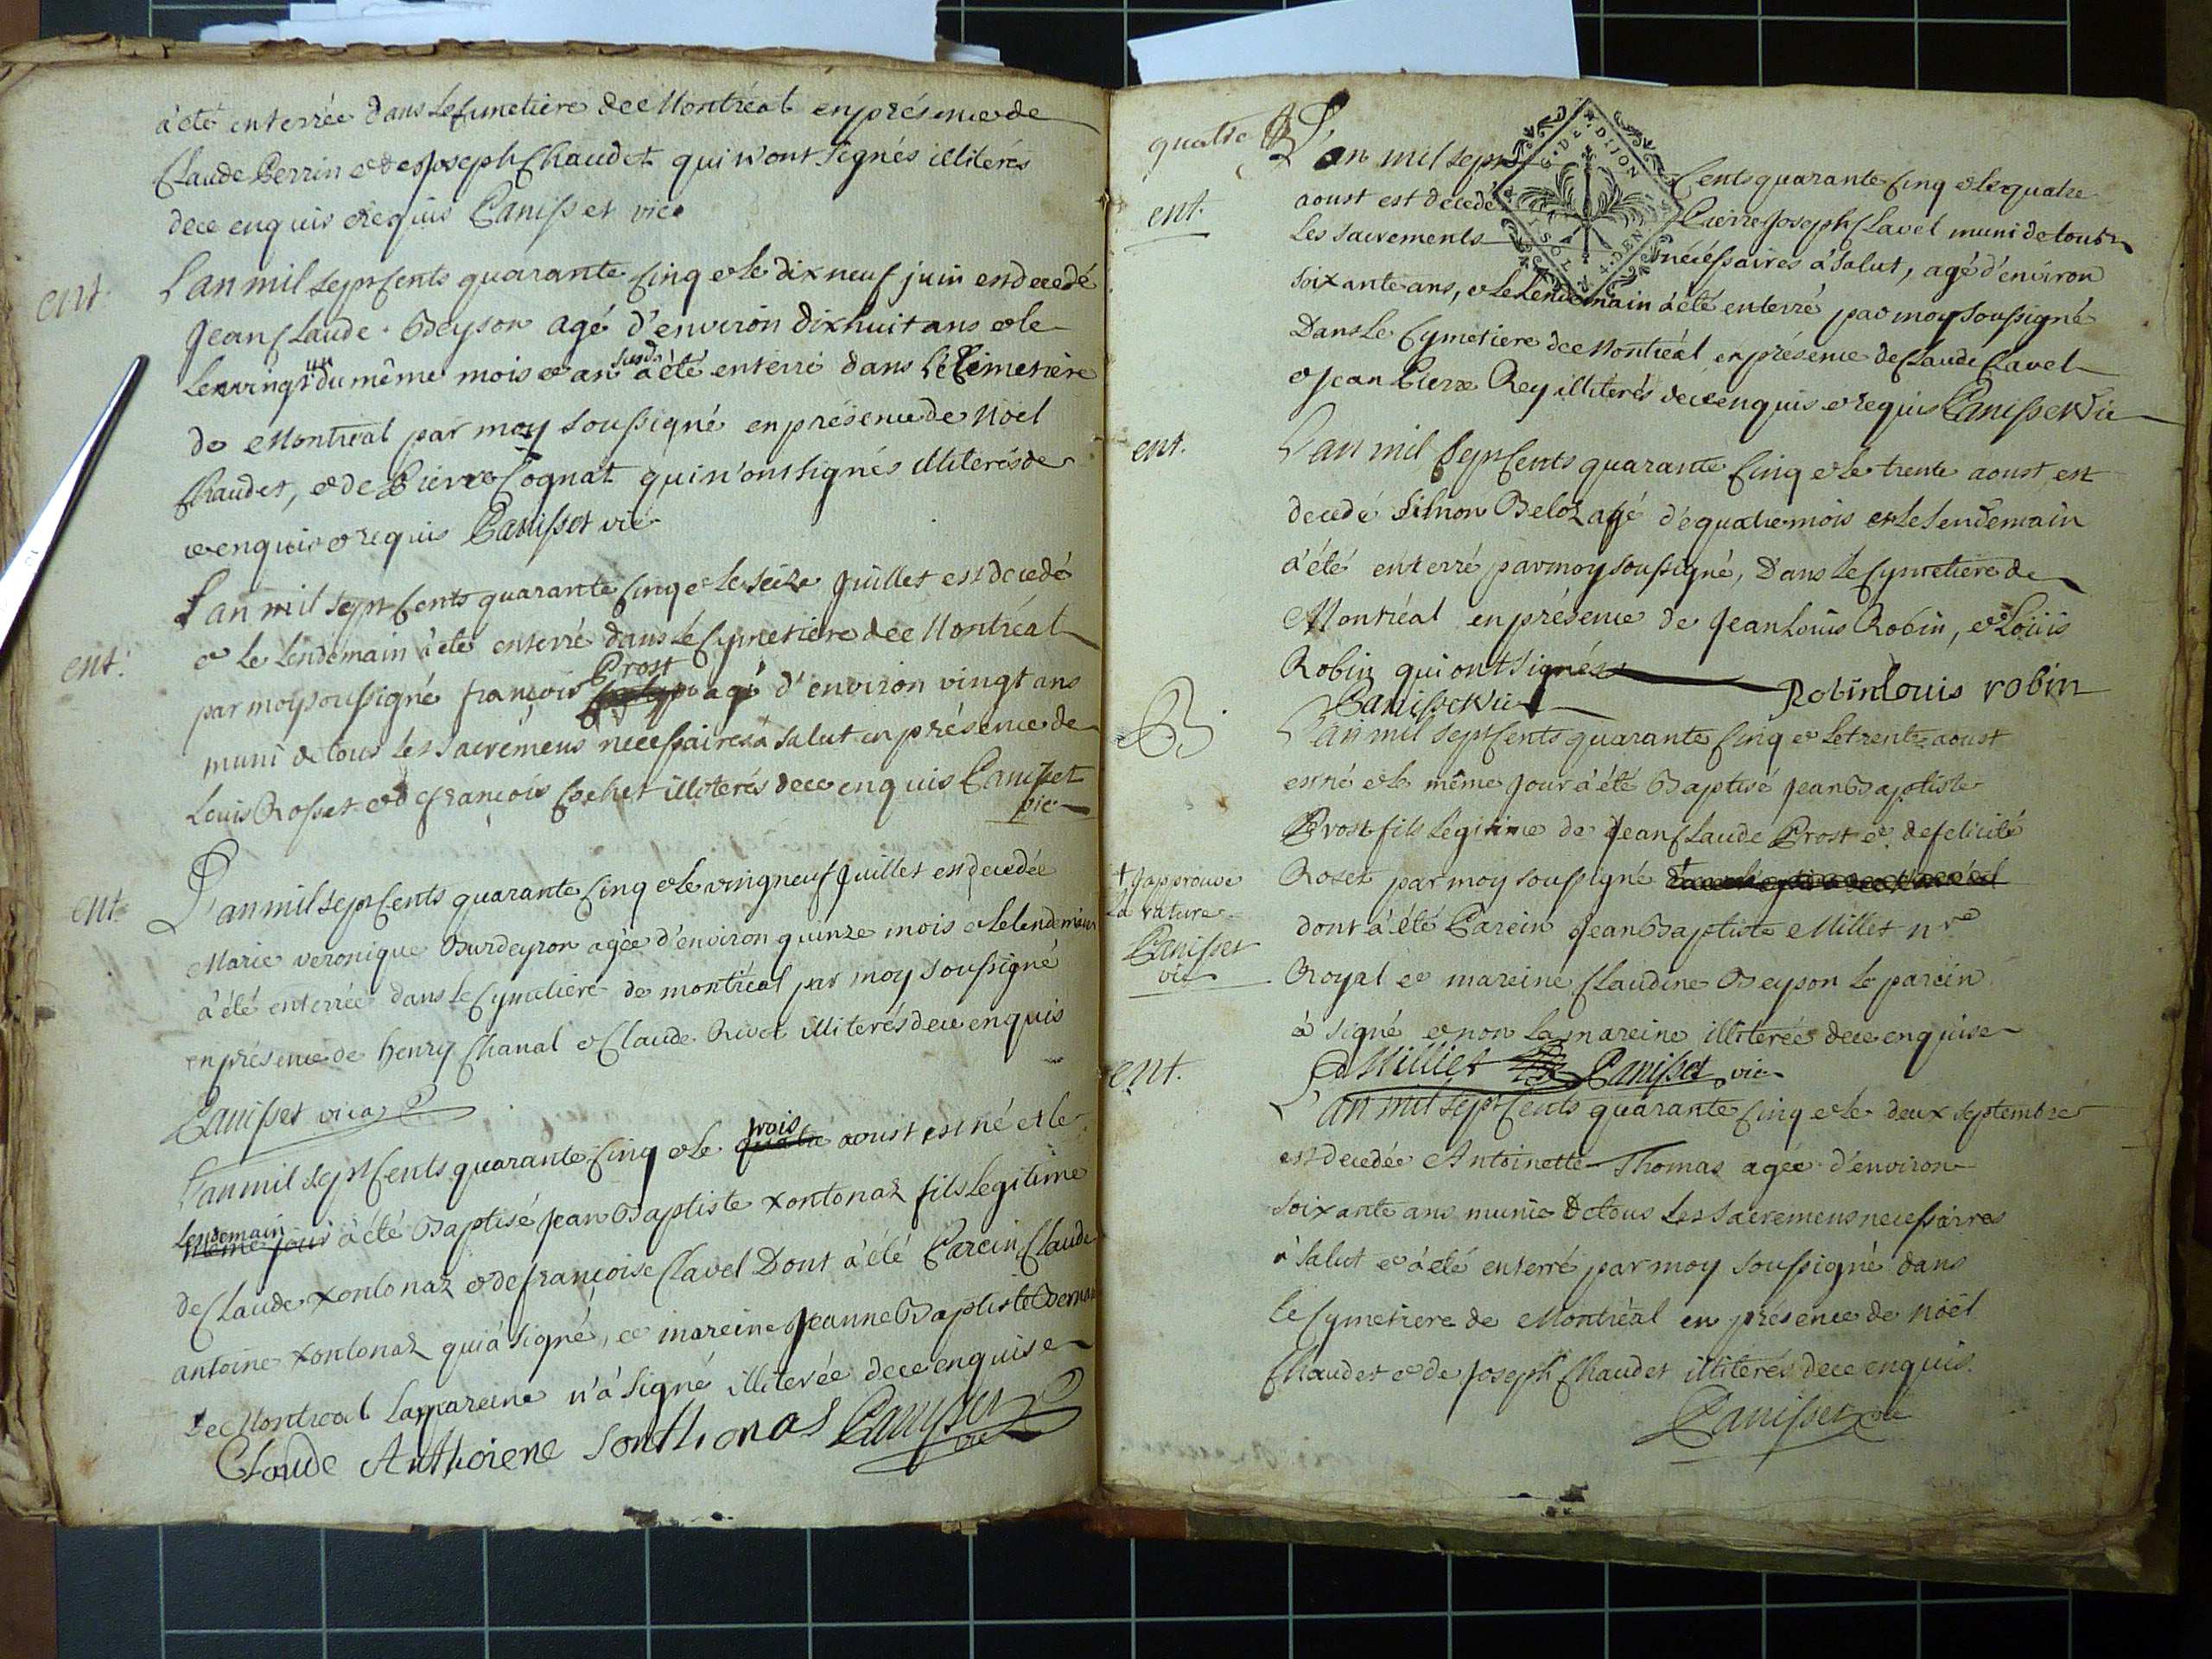 a été enterrée dans le Cimetiere de Montréal en présence de
Claude Perrin et de Joseph Chaudet qui n'ont signés illiterés
de ce enquis et requis Canisset vic.
ent.
L'an mil sept Cents quarante Cinq et le dix neuf juin est decedé
Jean Claude Beyson agé d'environ dix huit ans et le
vingt un du même mois et an susd. a été enterré dans le Cimetière
de Montréal par moy soussigné en présence de Noël
Chaudet, et de Pierre Cognat qui n'ont signés illiterés de
ce enquis et requis Canisset vic
ent.
L'an mil sept Cents quarante Cinq et le seize Juillet est decedé
et le Lendemain à été enterré dans le Cymetière de Montréal
par moy soussigné françois Prost agé d'environ vingt ans
muni de tous les sacrémens necessaires à salut en présence de
Louis Rosset et de françois Cochet illiterés de ce enquis Canisset
vic
ent.
L'an mil sept Cents quarante Cinq et le vingneuf Juillet est decedée
Marie veronique Burdeyron agée d'environ quinze mois et le lendemain
à été enterrée dans le Cymetiere de montréal par moy soussigné
en présence de henry Chanal et Claude Rivet illiterés de ce enquis
Canisset vic
L'an mil sept Cents quarante Cinq et le quatre trois aoust est né et le
même jour Lendemain à été Baptisé Jean Baptiste Xontonaz fils legitime
de Claude Xontonaz et de françoise Clavel Dont à été Parein Claude
antoine Xontonaz qui à signé, et mareine Jeanne Baptiste
de Montréal La mareine n'à signé illiterée de ce enquise
Claude Anthoiene Sonthonas Canisset
vic
quatre
ent.
G. DE DIJON
L'an mil sept Cents quarante Cinq et le quatre
aoust est decedé Pierre Joseph Clavel muni de tous
Les sacrements nécéssaires à salut, agé d'environ
soixante ans, et le Lendemain à été enterré par moy soussigné
Dans le Cymetiere de Montréal en présence de Claude Clavel
et Jean Pierre Rey illiterés de ce enquis et requis Canisset Vic
ent.
L'an mil sept Cents quarante Cinq et le trente aoust est
decedé Simon Beloz agé de quatre mois et le Lendemain
à été enterré par moy soussigné, Dans le Cymetiere de
Montréal en présence de Jean Louis Robin, et Louis
Robin qui ont signés
Canisset Vic Robin Louis robin
B.
L'an mil sept Cents quarante Cinq et le trente aoust
est né et le même Jour à été Baptisé Jean Baptiste
Prost fils légitime de Jean Claude Prost et de felicité
Roset par moy soussigné
+ J'approuve
La rature
Canisset
vic
dont à été Parein Jean Baptiste Millet nre
Royal et mareine Claudine Beyson Le parein
à signé et non La mareine illiterée de ce enquise
Milliet Canisset vic
ent.
L'an mil sept Cents quarante Cinq et le deux septembre
est decedée Antoinette Thomas agée d'environ
soixante ans munie de tous Les sacremens necessaires
à salut et à été enterré par moy soussigné dans
le Cymetiere de Montréal en présence de noël
Chaudet et de Joseph Chaudet illiterés de ce enquis.
Canisset vic